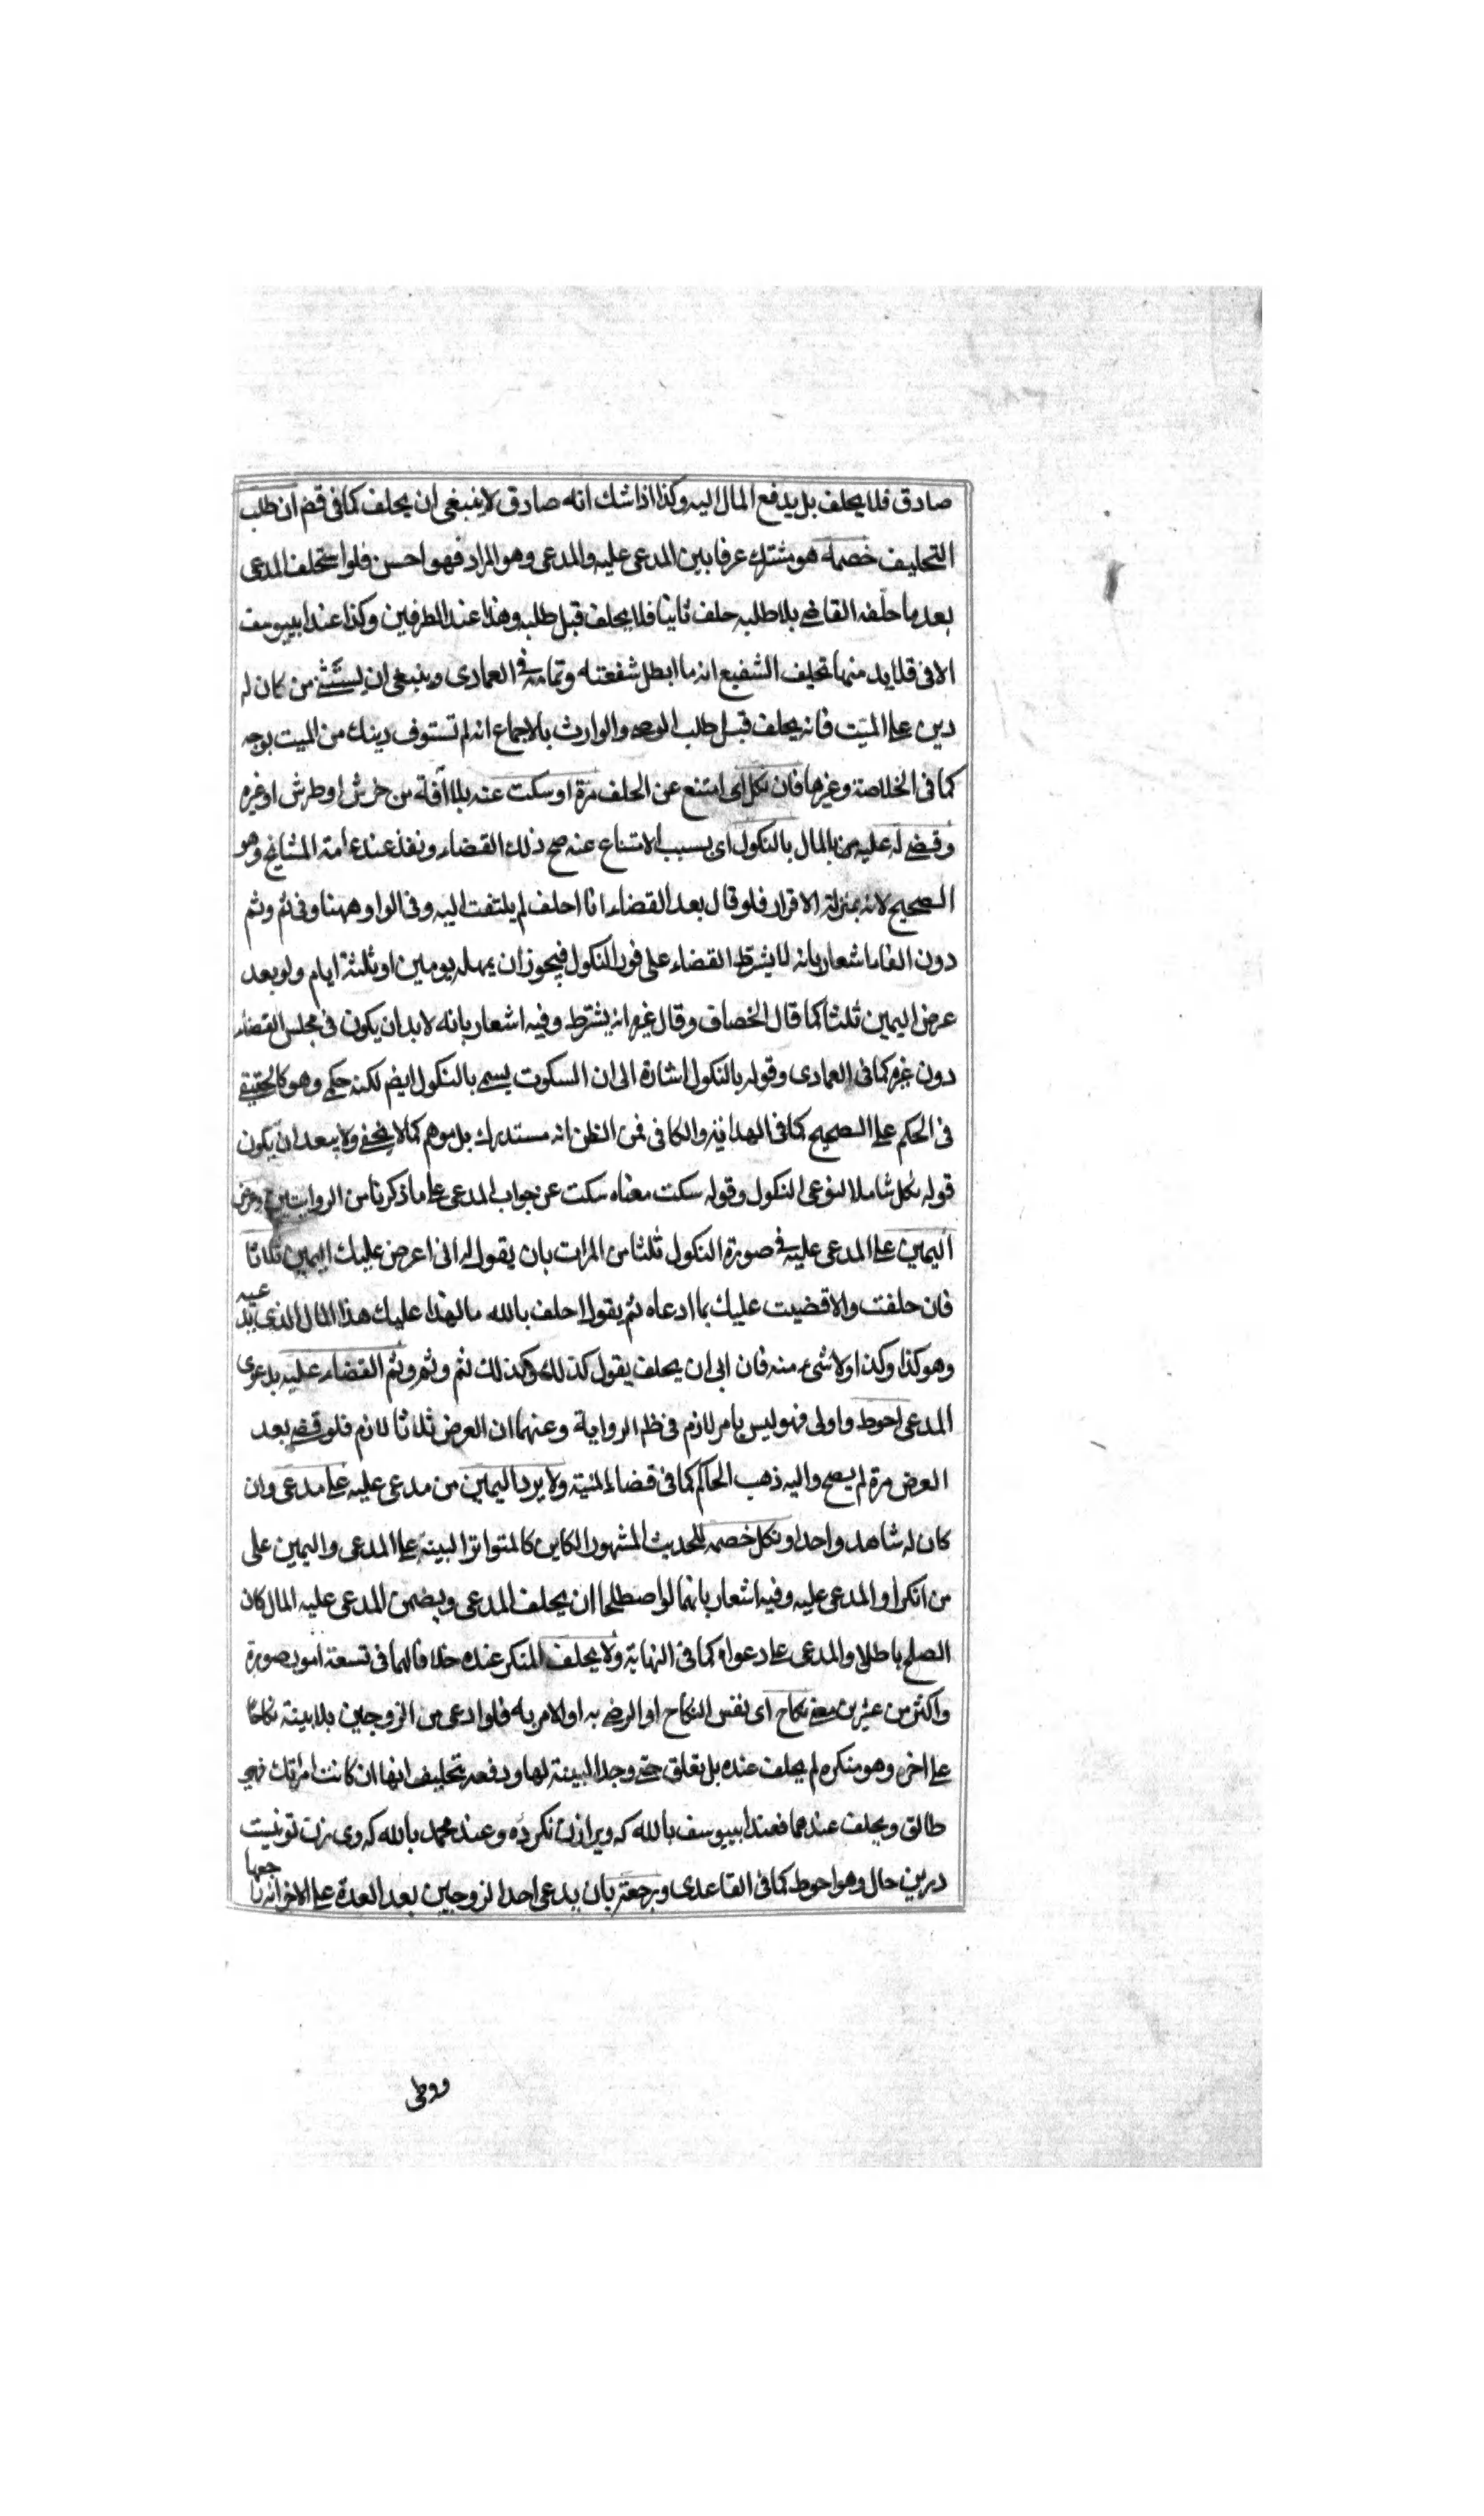 صادق فلا يحلف بل يدفع المال اليه وكذا اذا شك انه صادق لا ينبغي ان يحلف كما في قض ان طلب
التحليف خصمه هو مشترك عرفا بين المدعى عليه والمدعى وهو المراد فهو احسن فلو استحلف المدعى
بعد ما حلفه القاضي بلا طلبه حلف ثانيا فلا يحلف قبل طلبه وهذا عند الطرفين وكذا عند ابييوسف
الا في قلايد منها تحليف الشفيع انه ما ابطل شفعته وتمامه في العمادى وينبغي ان يستثنى من كان له
دين على الميت فانه يحلف قبل طلب الوصى والوارث بالاجماع انه لم تستوف دينك من الميت بوجه
كما في الخلاصة وغيرها فان نكل اى امتنع عن الحلف مرة او سكت عنه بلا آفة من خرش او طرش او غيره
وقضى له عليه بالمال بالنكول اى بسبب الامتناع عنه صح ذلك القضاء ونفذ عند عامة المشايخ وهو
الصحيح لانه بمنزلة الاقرار فلو قال بعد القضاء انا احلف لم يلتفت اليه وفي الواو ههنا وفي ثم وثم
دون الفاء اشعار بانه لا يشترط القضاء على فور النكول فيجوز ان يمهله يومين او ثلثة ايام ولو بعد
عرض اليمين ثلثا كما قال الخصاف وقال غيره انه يشترط وفيه اشعار بانه لا بد ان يكون في مجلس القضاء
دون غيره كما في العمادى وقوله بالنكول اشارة الى ان السكوت يسمى بالنكول ايض لكنه حكمي وهو كالحقيقي
في الحكم على الصحيح كما في الهداية والكافى فمن الظن انه مستدرك بل موهم كما لا يخفى ولا يبعد ان يكون
قوله نكل شاملا لنوعى النكول وقوله سكت معناه سكت عن جواب المدعى على ما ذكرنا من الروايتين وعرض
اليمين على المدعى عليه في صورة النكول ثلثا من المرات بان يقول له انى اعرض عليك اليمين ثلاثا
فان حلفت والا قضيت عليك بما ادعاه ثم يقول احلف بالله ما لهذا عليك هذا المال الذى يدعيه
وهو كذا وكذا ولا شىء منه فان ابى ان يحلف يقول كذلك وكذلك ثم وثم وثم القضاء عليه بدعوى
المدعى احوط واولى فهو ليس بامر لازم في ظ الرواية وعنهما ان العرض ثلاثا لازم فلو قضى بعد
العرض مرة لم يصح واليه ذهب الحاكم كما في قضاء المنية ولا يرد اليمين من مدعى عليه على مدعى وان
كان له شاهد واحد او نكل خصمه للحديث المشهور الكاين كالمتواتر البينة على المدعى واليمين على
من انكر او المدعى عليه وفيه اشعار بانهما لو اصطلحا ان يحلف المدعى ويضمن المدعى عليه المال كان
الصلح باطلا والمدعى على دعواه كما في النهاية ولا يحلف المنكر عنده خلافا لهما في تسعة امور صورة
واكثر من عشرين معنى نكاح اى نفس النكاح او الرضى به او الامر به فلو ادعى من الزوجين بلا بينة نكاحا
على اخر وهو منكره لم يحلف عنده بل تعلق حتى وجد البينة لها ودفعه تحليف انها ان كانت امراتك فهي
طالق ويحلف عندهما فعند ابييوسف بالله كه ويرا زن نكرده وعند محمد بالله كه وى بزن تو نيست
درين حال وهو احوط كما في القاعدى وبرجعة بان يدعى احد الزوجين بعد العدة على الاخر انه راجعها
ووطى